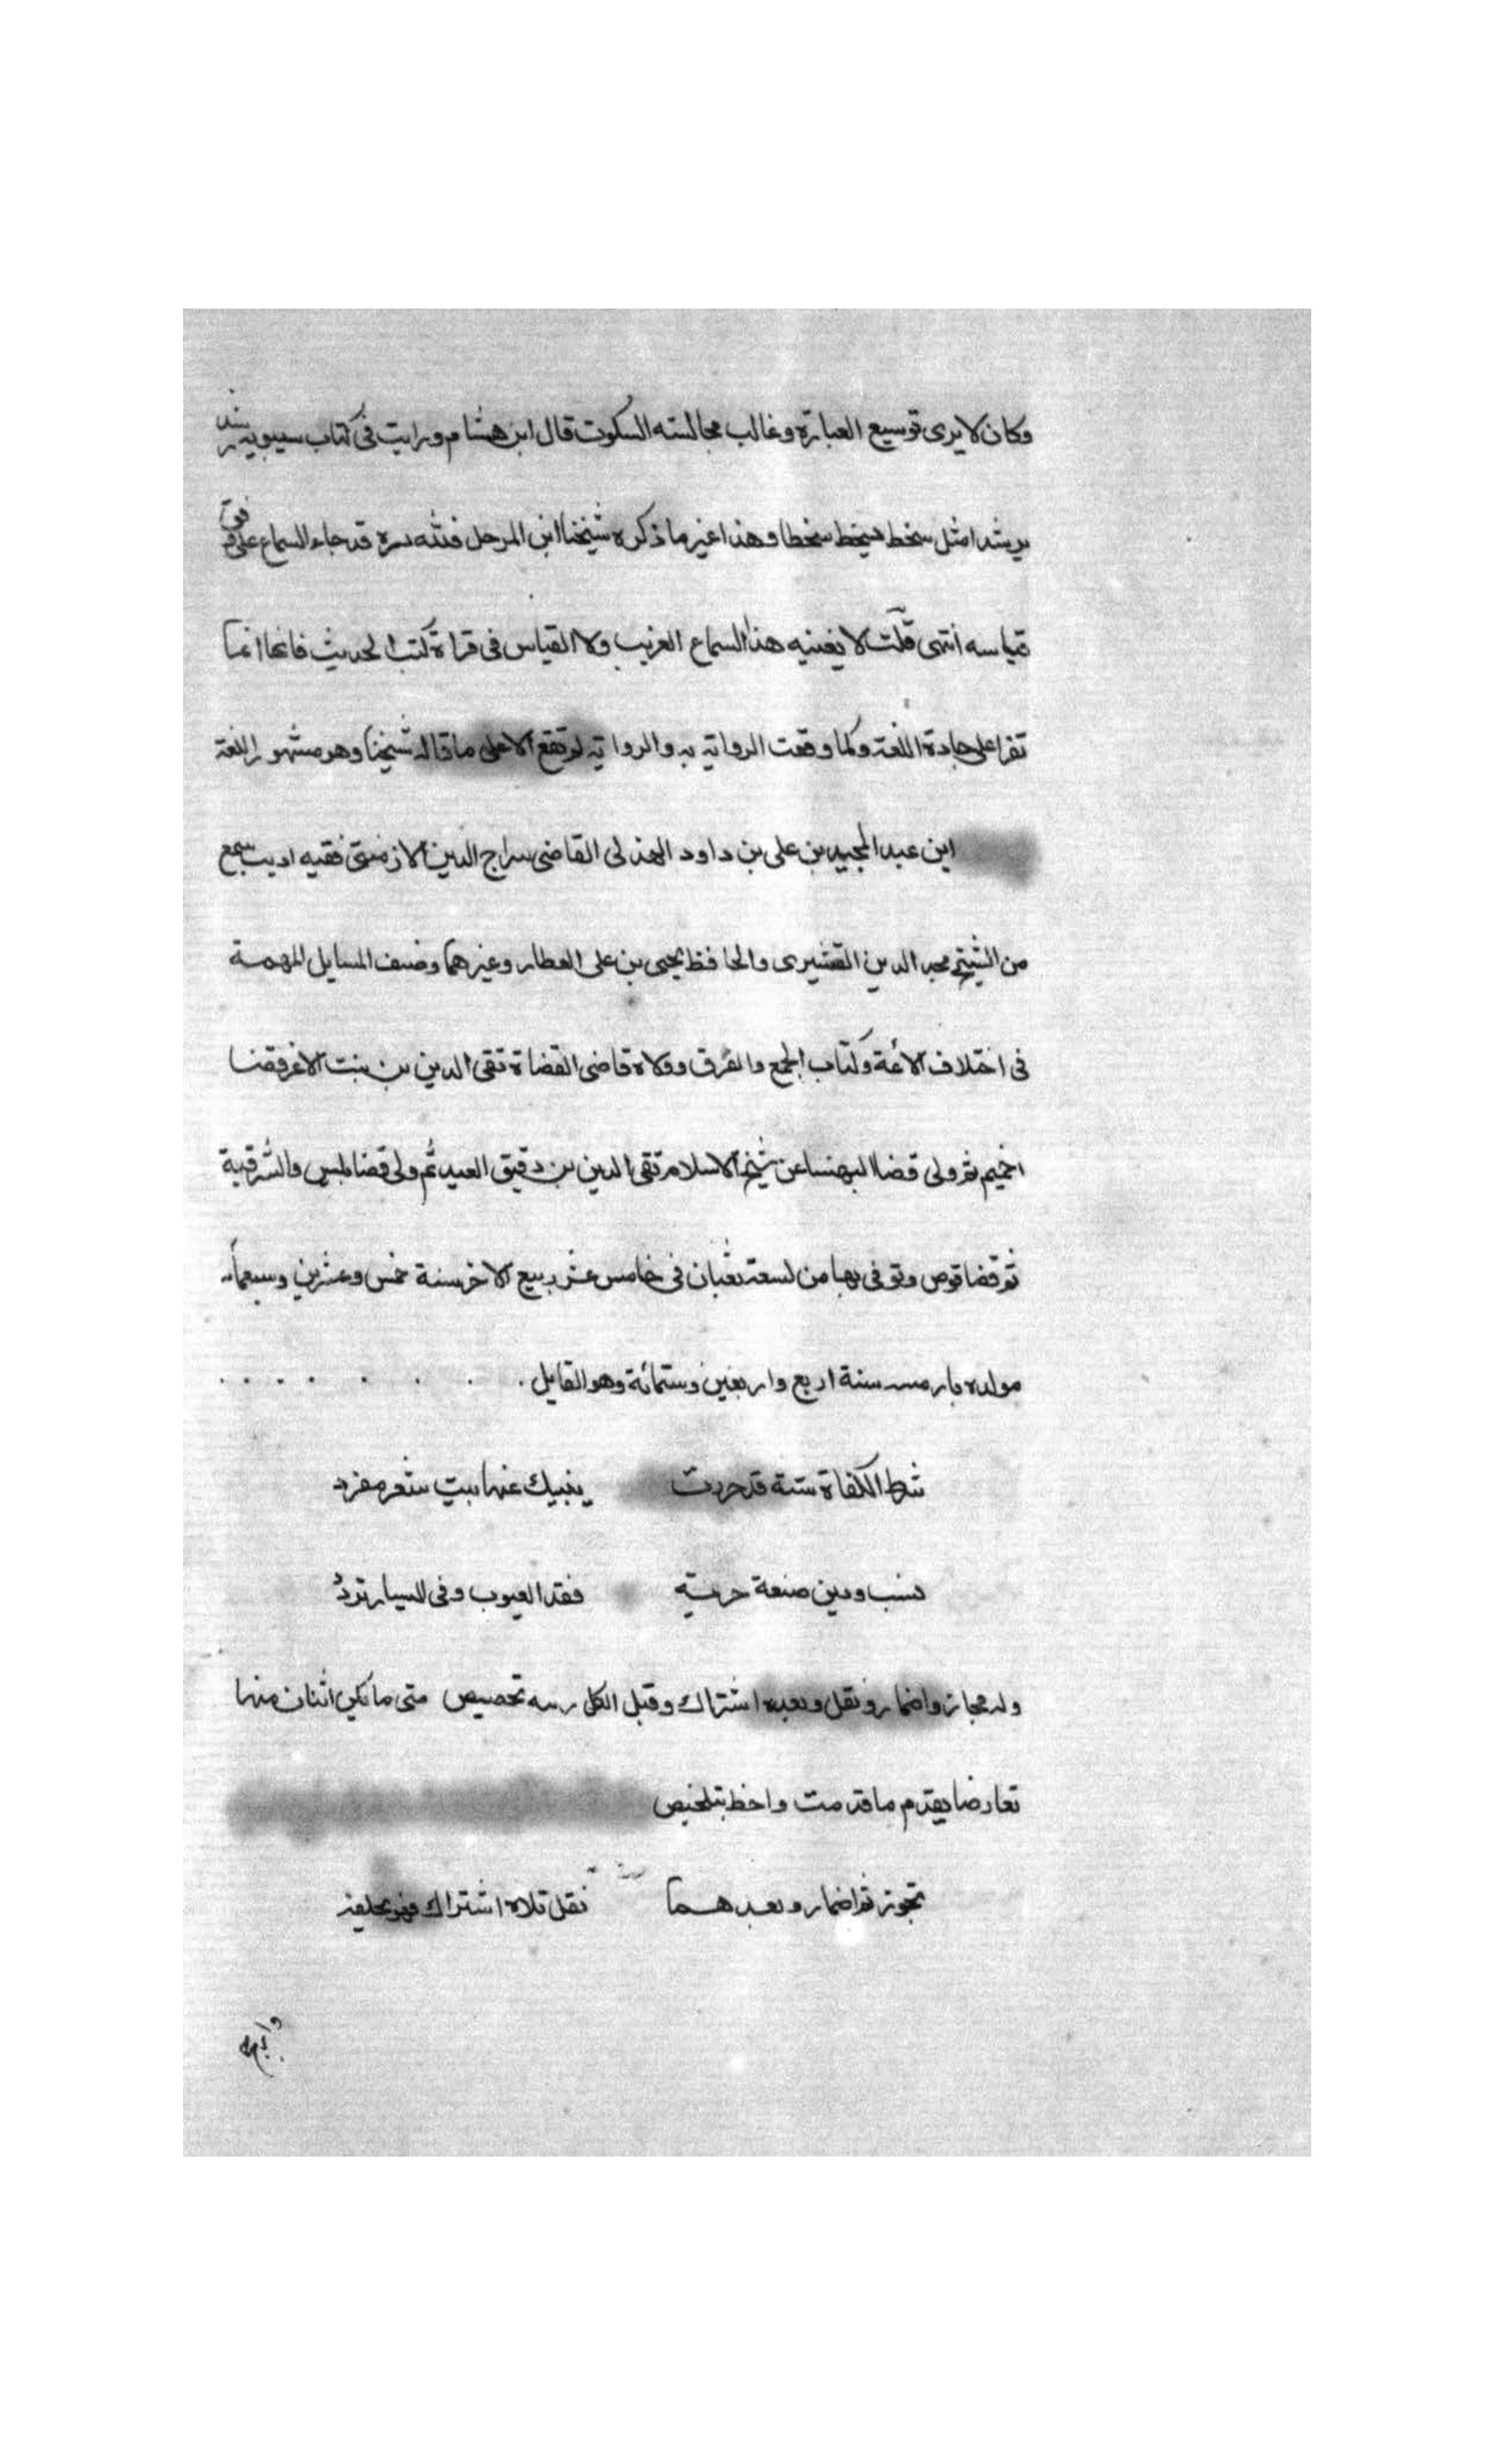 وكان لا يرى توسيع العبارة وغالب مجالسته السكوت قال ابن هشام ورايت في كتاب سيبويه رشد
يرشد امثل سخط يسخط سخطا وهذا غير ما ذكره شيخنا ابن المرحل فلله دره قد جاء السماع على وفق
قياسه انتهى قلت لا يغنيه هذا السماع الغريب ولا القياس في قراة كتب الحديث فانها انما
تقرا على جادة اللغة وكما وقعت الرواية به والرواية لم تقع الا على ما قاله شيخنا وهو مشهور اللغة
ابن عبد المجيد بن على بن داود الهذلى القاضى سراج الدين الارمنتى فقيه اديب سمع
من الشيخ مجد الدين القشيرى والحافظ يحيى بن على العطار وغيرهما وصنف المسايل المهمة
فى اختلاف الائمة وكتاب الجمع والفرق وولاه قاضى القضاة تقى الدين بن بنت الاعز قضا
اخميم ثم ولى قضا البهنسا عن شيخ الاسلام تقى الدين بن دقيق العيد ثم ولى قضا بلبيس والشرقية
ثم قضا قوص وتوفى بها من لسعة ثعبان فى خامس عشر ربيع الاخر سنة خمس وعشرين وسبعمائة
مولده بارمنت سنة اربع واربعين وستمائة وهو القايل
شرط الكفاة ستة قد حررت ينبيك عنها بيت شعر مفرد
نسب ودين صنعة حرية فقد العيوب وفى اليسار تردد
وله مجاز واضمار ونقل وبعده اشتراك وقبل الكل رتبه تخصيص متى ما تكن اثنان منها
تعارضا يقدم ما قدمت واحظ بتلخيص
تجوز ثم اضمار وبعدهما نقل تلاه اشتراك فهو يخلفه